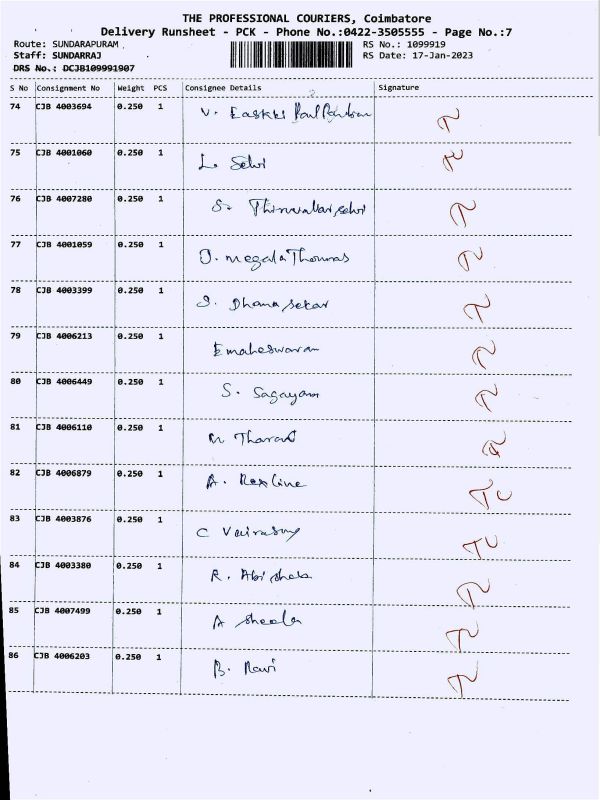 THE PROFESSIONAL COURIERS, Coimbatore
Delivery Runsheet - PCK - Phone No.:0422-3505555 - Page No.:7
Route: SUNDARAPURAM
RS No.: 1099919
Staff: SUNDARRAJ
RS Date: 17-Jan-2023
DRS No.: DCJB109991907
S No Consignment No Weight PCS Consignee Details Signature
74 CJB 4003694 0.250 1 V.
75 CJB 4001060 0.250 1 L. Selvi
76 CJB 4007280 0.250 1 S.
77 CJB 4001059 0.250 1 J. Megala Thomas
78 CJB 4003399 0.250 1 Dhana sekar
79 CJB 4006213 0.250 1 E maheswaran
80 CJB 4006449 0.250 1 S. Sagayam
81 CJB 4006110 0.250 1
82 CJB 4006879 0.250 1 A. Rexline
83 CJB 4003876 0.250 1 C
84 CJB 4003380 0.250 1 R.
85 CJB 4007499 0.250 1 A sheela
86 CJB 4006203 0.250 1 B. Ravi